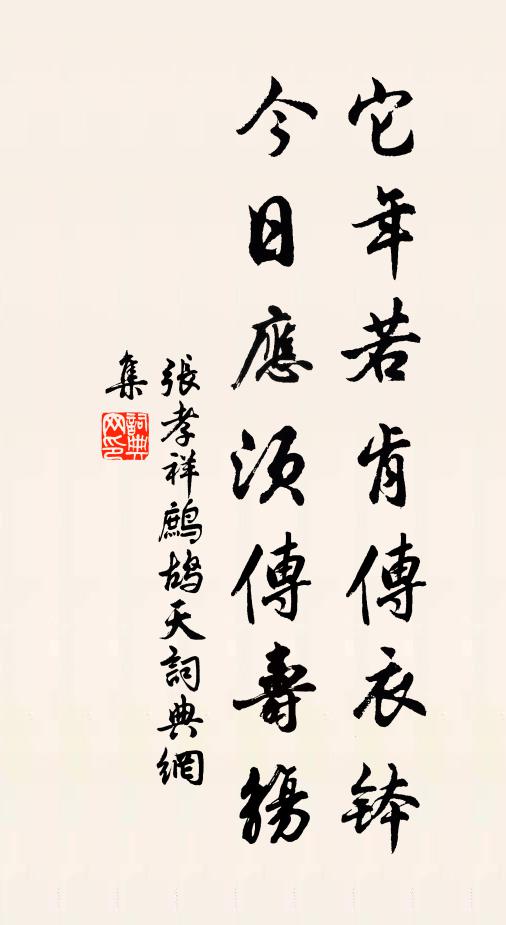 它年若肯傳衣鉢
今日應須傳壽觴
張孝祥鷓鴣天詞典網
集
詞典
网印